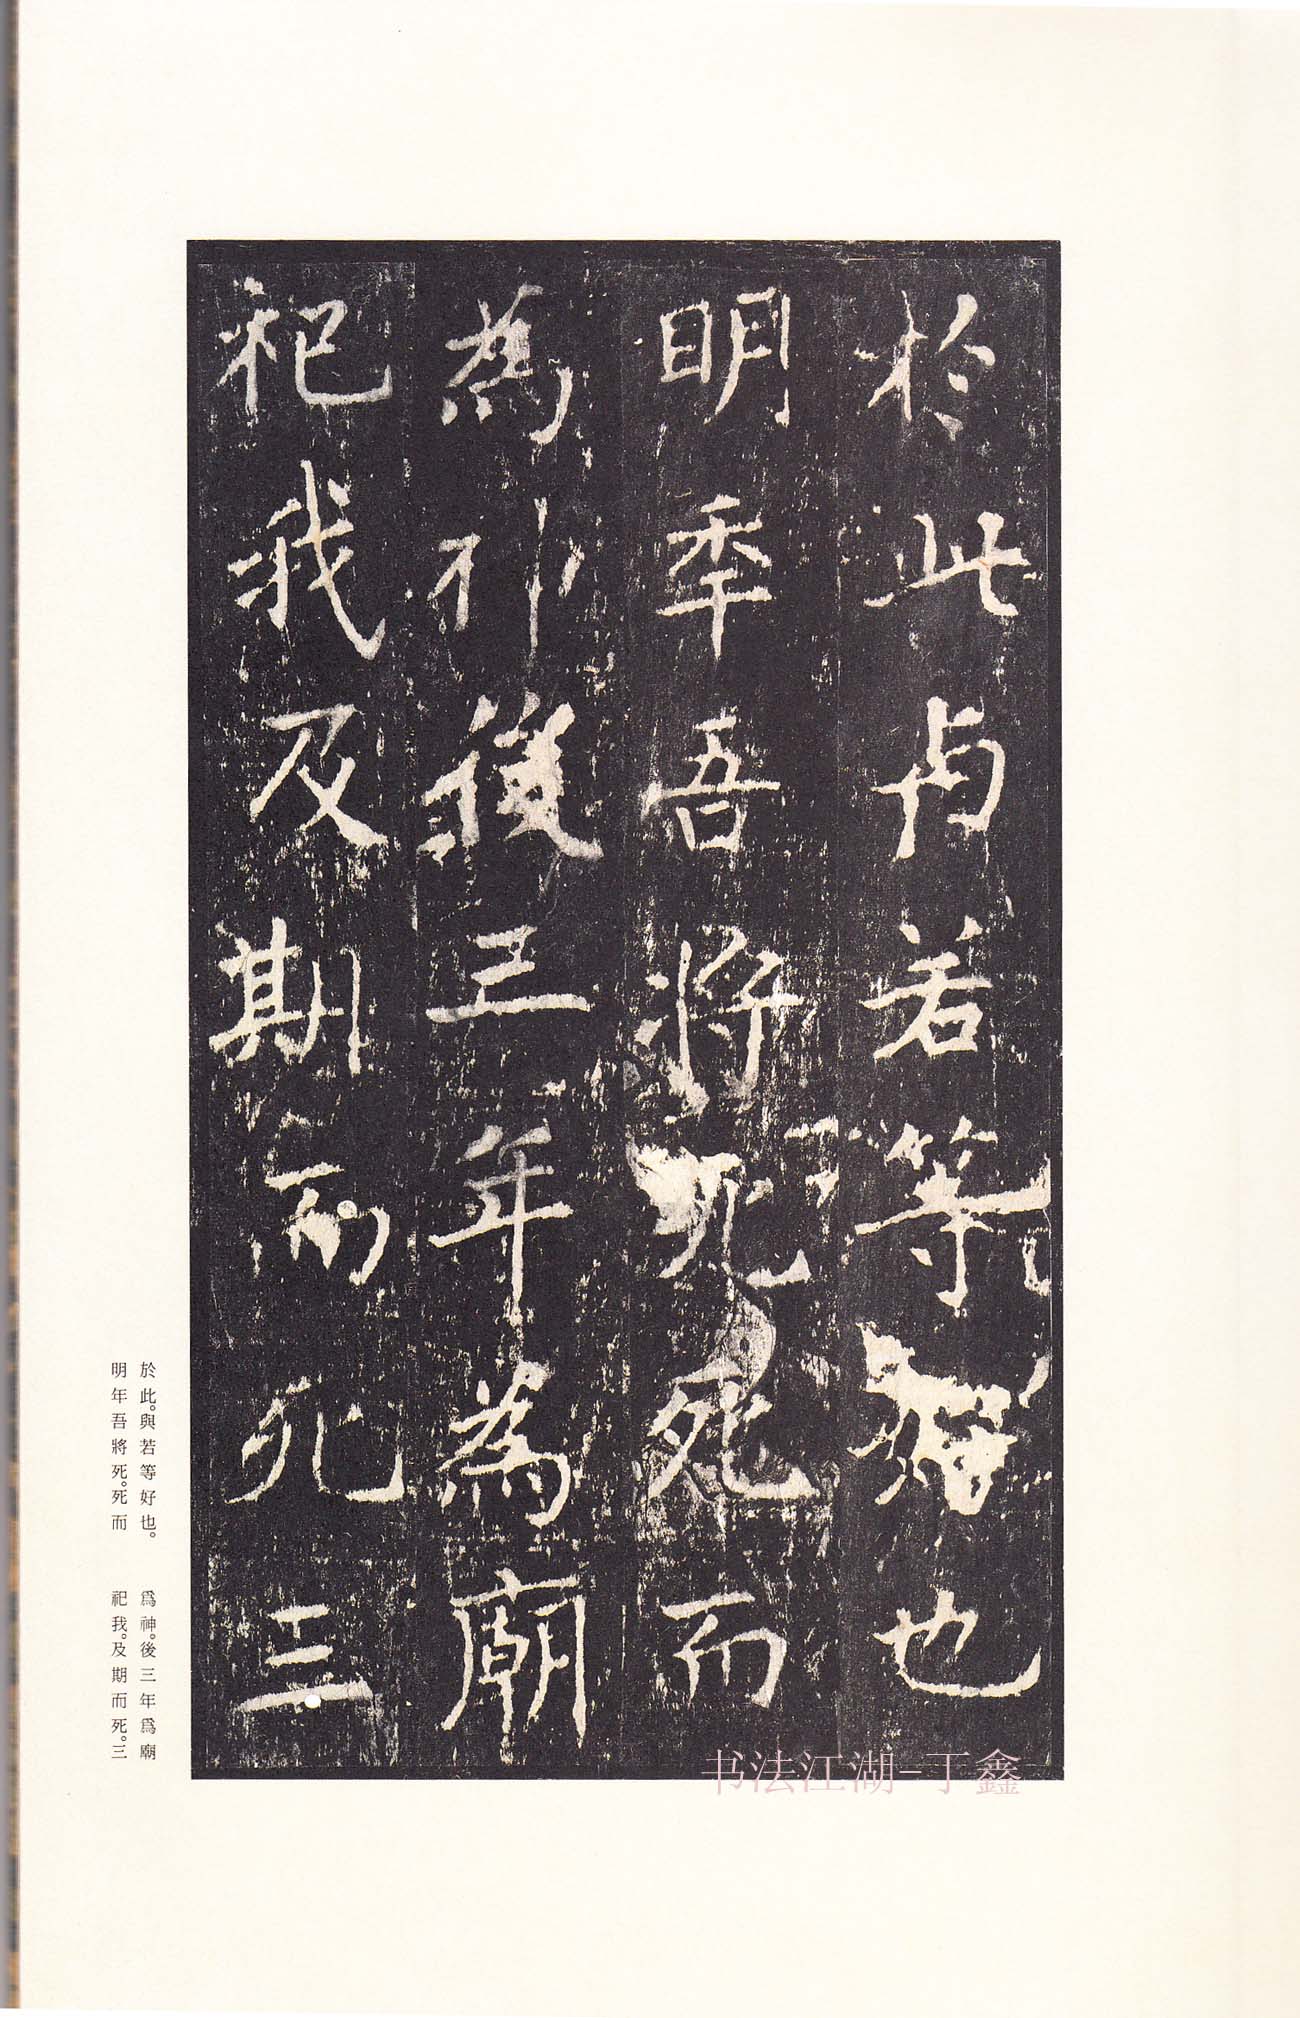 於此與若等好也
明年吾將死死而
爲神後三年爲廟
祀我及期而死三
於此。與若等好也。
明年吾將死。死而
爲神。後三年爲廟
祀我。及期而死。三
书法江湖-丁鑫